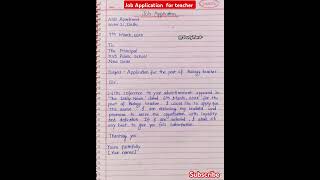 Job Application for teacher
Job Application
Apartment
Delhi
7th March,
To
The Principal
Public School
New Delhi
Subject - Application for the post of Biology teacher
Sir,
With reference to your advertisement appeared in
"The Daily News" dated 6th March, for the
post of Biology teacher. I would like to apply for
the same. I am
promise to serve the with loyalty
and dedication. If I am selected, I shall do
my best to give you full satisfaction.
Thanking you
Yours faithfully
[Your name]
Subscribe